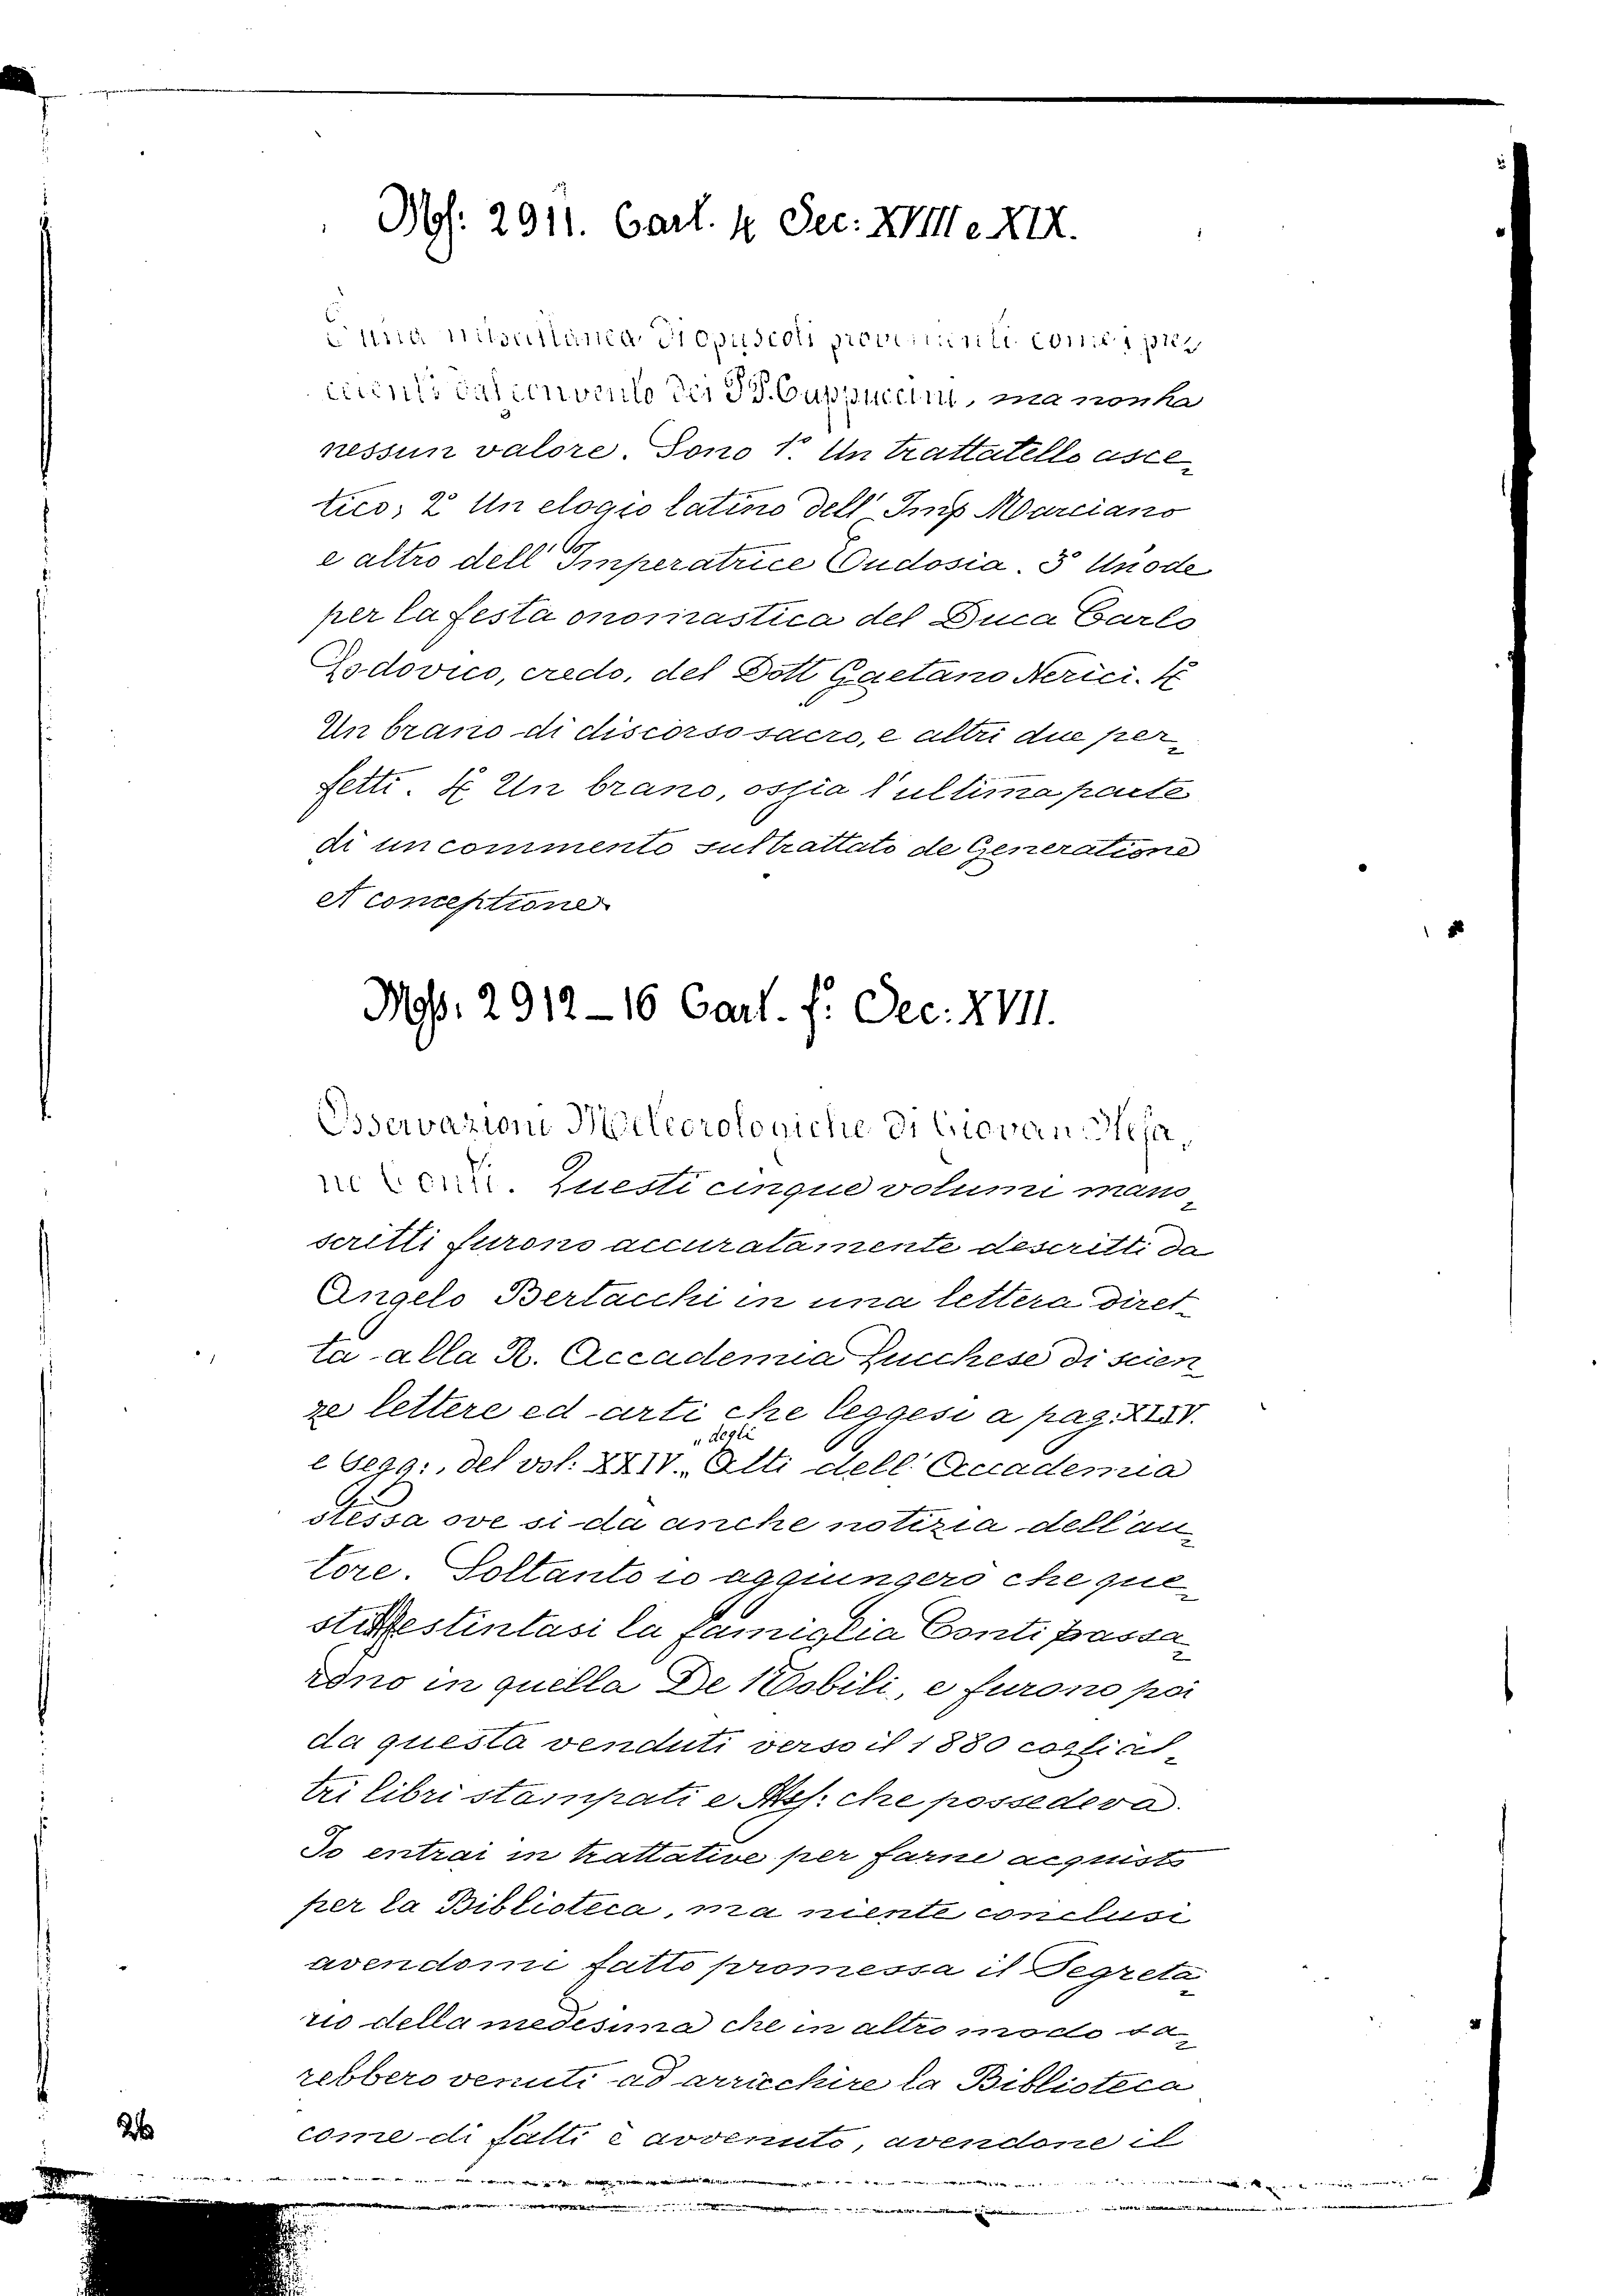 Ms: 2911. Cart. 4 Sec: XVIII e XIX.
È una miscellanea d'opuscoli provenienti come i prez
cedenti dal convento dei PP. Cappuccini, ma non ha
nessun valore. Sono 1º. Un trattatello asce-
tico, 2º Un elogio latino dell' Imp Marciano
e altro dell' Imperatrice Eudosia. 3º Un ode
per la festa onomastica del Duca Carlo
Lodovico, credo, del Dott Gaetano Nerici. 4º
Un brano di discorso sacro, e altri due per-
fetti. Un brano, ossia l'ultima parte
di un commento sul trattato de Generatione
et conceptione
Mss. 2912-16 Cart. f: Sec: XVII.
Osservazioni Meteorologiche di Giovan Stefa-
no Conti. Questi cinque volumi mano-
scritti furono accuratamente descritti da
Angelo Bertacchi in una lettera diret-
ta alla R. Accademia Lucchese di scien-
ze lettere ed arti che leggesi a pag. XLIV.
e segg:, del vol: XXIV. "degli Atti dell' Accademia
stessa ove si dà anche notizia dell'au-
tore. Soltanto io aggiungerò che que-
sti estintasi la famiglia Conti passa-
rono in quella De Nobili, e furono poi
da questa venduti verso il 1880 cogli al-
tri libri stampati e Mss: che possedeva.
Io entrai in trattative per farne acquisto
per la Biblioteca, ma niente conclusi
avendomi fatto promessa il Segreta-
rio della medesima che in altro modo sa-
rebbero venuti ad arricchire la Biblioteca
come di fatti è avvenuto, avendone il
26